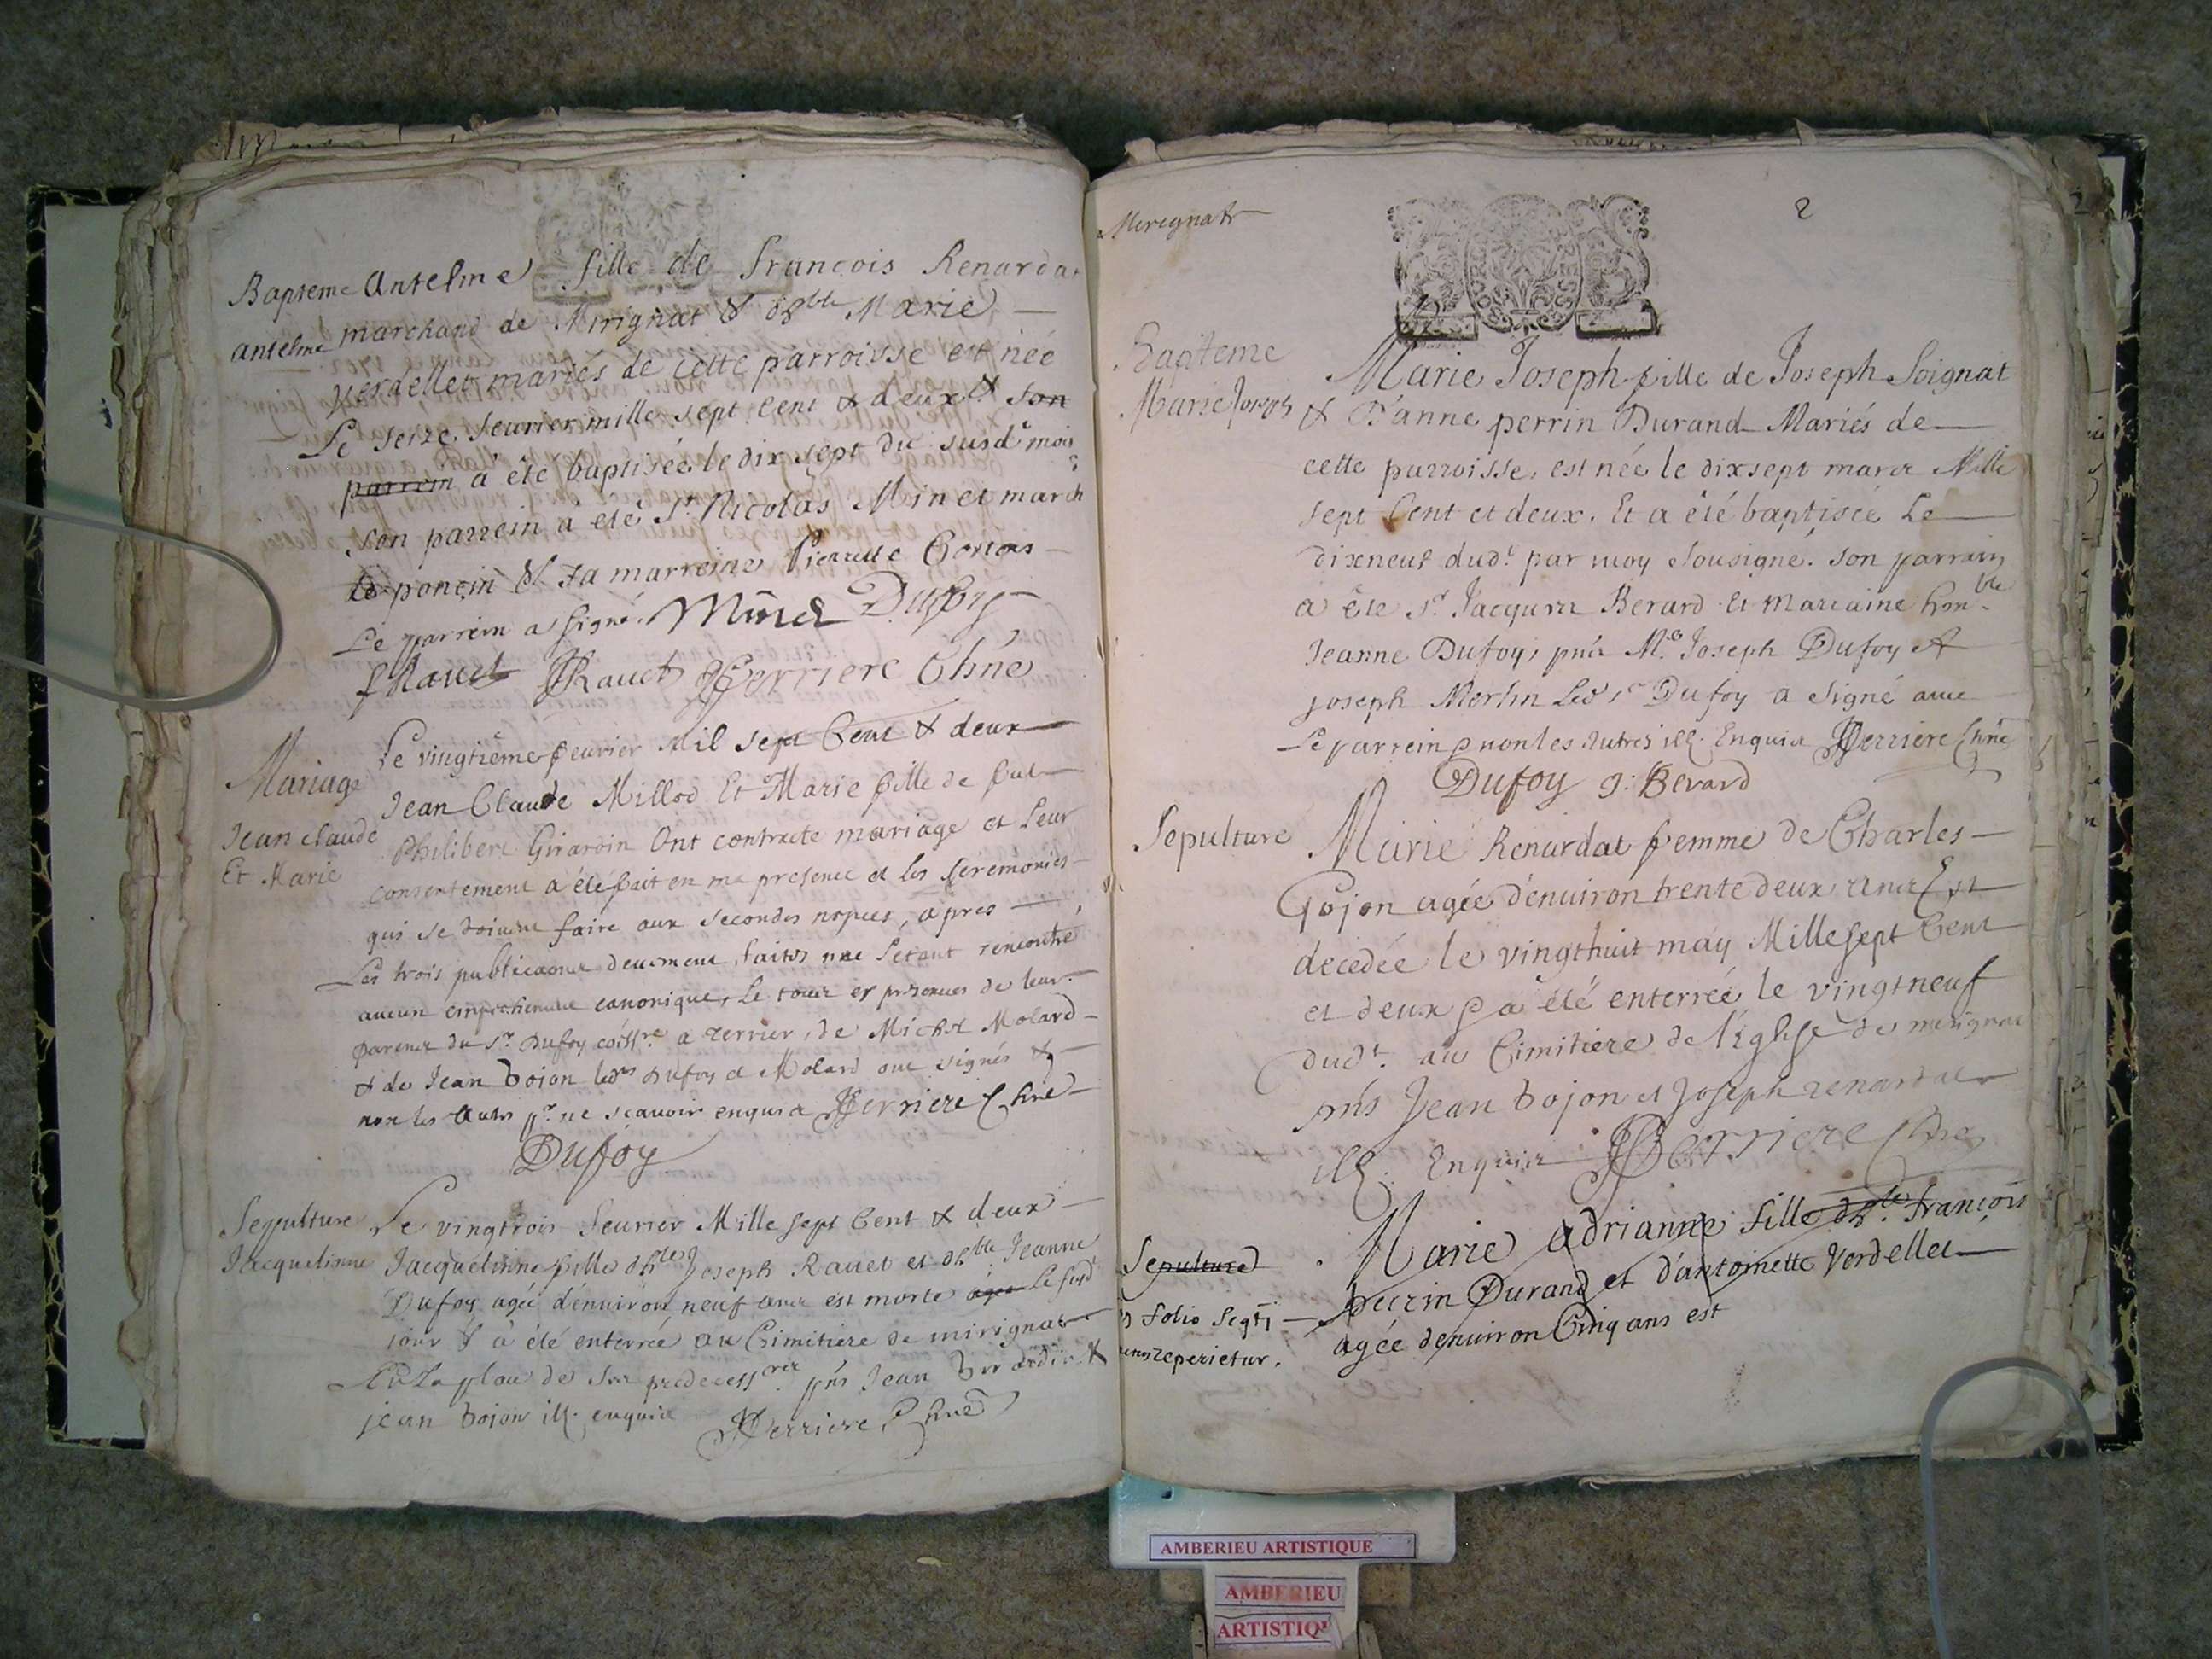 Bapteme Antelme fille de francois Renardat
antelme marchand de Mirignat & hble Marie
verdellet mariés de cette parroisse est née
Le seize feurier mille sept Cent & deux & son
parrein à été baptisée le dix sept du susd mois
son parrein à été Sr Nicolas Minet march
de poncin & sa marreine Pierrette
Le parrein a signé. Minet Dufoy
Rauet JRauet JFerriere Chne
Mariage
Jean Claude
Et Marie
Le vingtième feurier Mil sept Cent & deux
Jean Claude Millod Et Marie fille de fut
Philibert Girardin Ont contracté mariage et Leur
consentement a été fait en ma presence et les seremonies
qui se doiuent faire aux secondes nopces, apres
Les trois publications deuement faites nne s'etant rencontré
aucun empechement canonique, Le tout es presences de leur
parens du Sr Dufoy coissre a terrier, de Michel Molard
& de Jean Bojon lesd Dufoy et Molard ont signés &
non les autres pr ne scauoir enquis JFerriere Chne
Dufoy
Sepulture
Jacquelinne
Le vingtrois feurier Mille sept Cent & deux
Jacquelinne fille d'hble Joseph Rauet et d'hble Jeanne
Dufoy agée d'énuiron neuf ans est morte agée Le susd
jour & à été enterrée au Cimitiere de mirignat
En La place de ses predecessrs pns Jean Girardin &
jean Bojon ill. enquis JFerriere Chne
Meregnat
2
Bapteme
Marie Joseph
Marie Joseph fille de Joseph Soignat
& D'anne perrin Durand Mariés de
cette parroisse, est née le dixsept mars Mille
sept Cent et deux. Et a été baptisée Le
dixneuf dudt par moy sousigné. son parrain
a été Sr Jacques Berard Et Marraine honble
Jeanne Dufoy, pns Me Joseph Dufoy &
joseph Merlin Led Sr Dufoy a signé auec
Le parrein & non les Autres ill. Enquis JFerriere Chne
Dufoy J: Berard
Sepulture
Marie Renardat femme de Charles
Gojon agée d'énuiron trente deux ans Est
decedée le vingthuit may Mille sept Cent
et deux & a été enterrée le vingtneuf
dudt au Cimitiere de l'Eglise de merignat
pns Jean Bojon et Joseph renardat
ill. Enquis JFerriere Chne
Sepulture
folio segti
reperietur.
Marie Adrianne fille d'hble François
perrin Durand et d'antoinette Verdellet
agée denuiron Cinq ans est
AMBERIEU ARTISTIQUE
AMBERIEU
ARTISTIQU